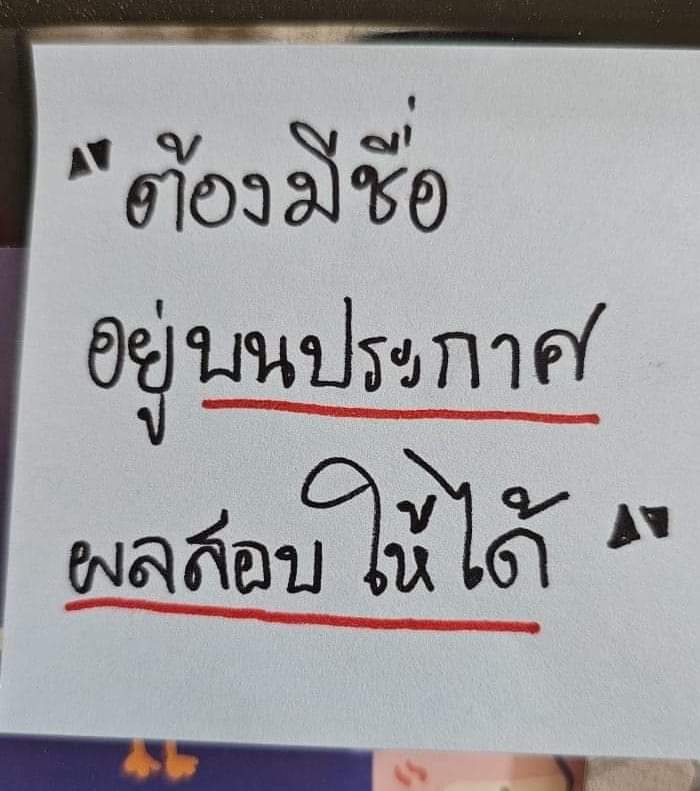 "ต้องมีชื่อ
อยู่บนประกาศ
ผลสอบให้ได้"